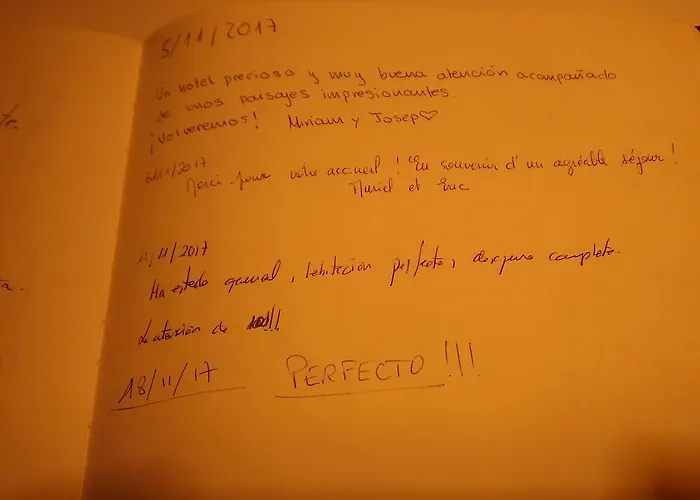 te.
a.
5/11/2017
Un hotel precioso y muy buena atención acompañado
de unos paisajes impresionantes.
¡Volveremos! Miriam y Josep♡
6/11/2017
Merci pour votre accueil ! En souvenir d'un agréable séjour !
Muriel et Eric
11/2017
Ha estado genial, habitación perfecta, desayuno completo.
La atención de !!!
18/11/17 PERFECTO!!!